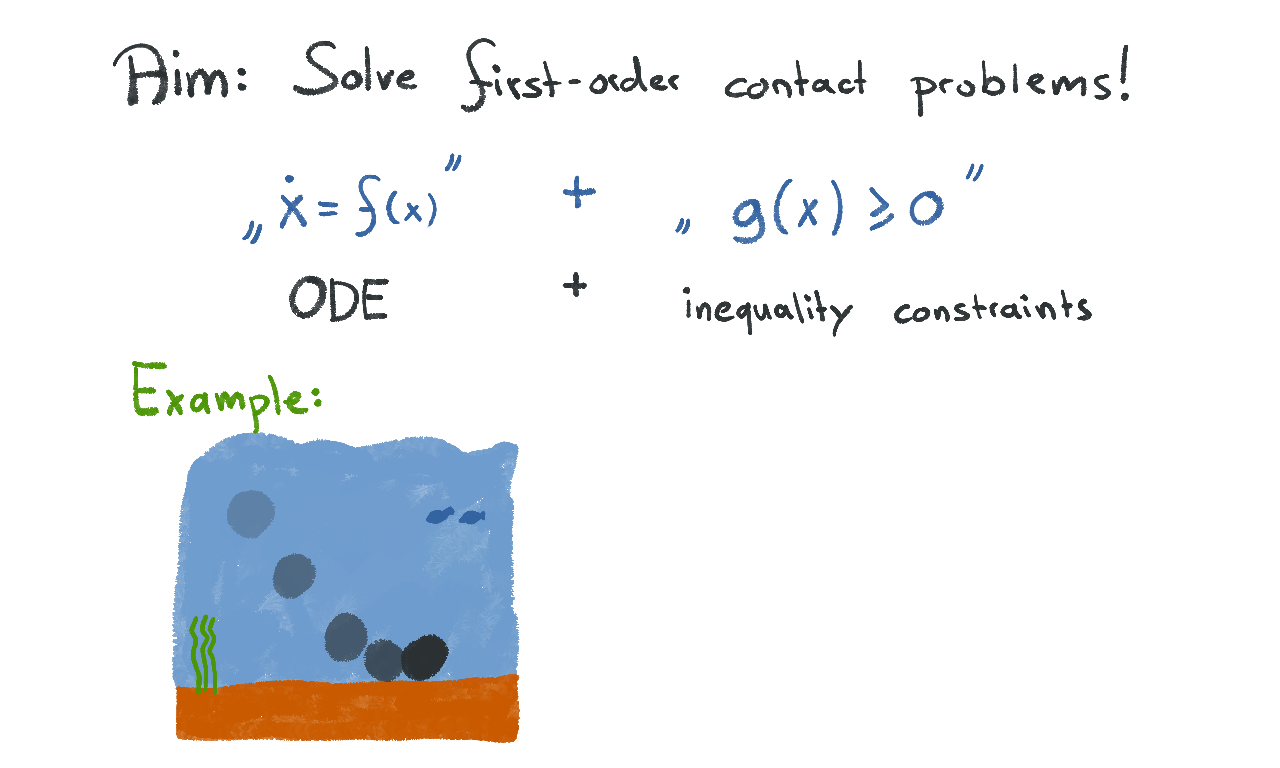 Aim: Solve first-order contact problems!
„ẋ = f(x)” + „g(x) ≥ 0”
ODE + inequality constraints
Example: